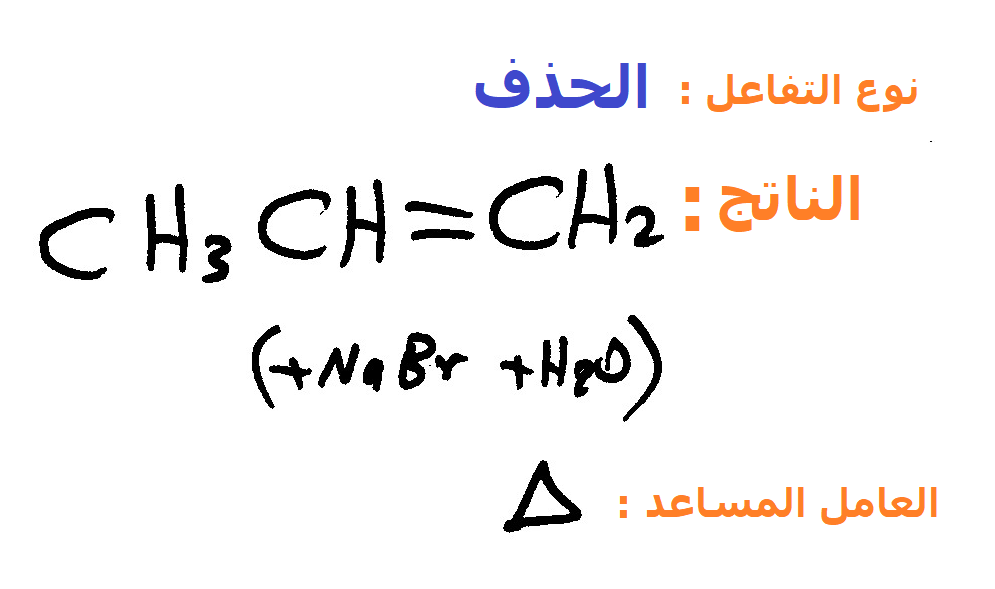 نوع التفاعل : الحذف
الناتج : CH3CH=CH2
(+NaBr +H2O)
العامل المساعد : Δ